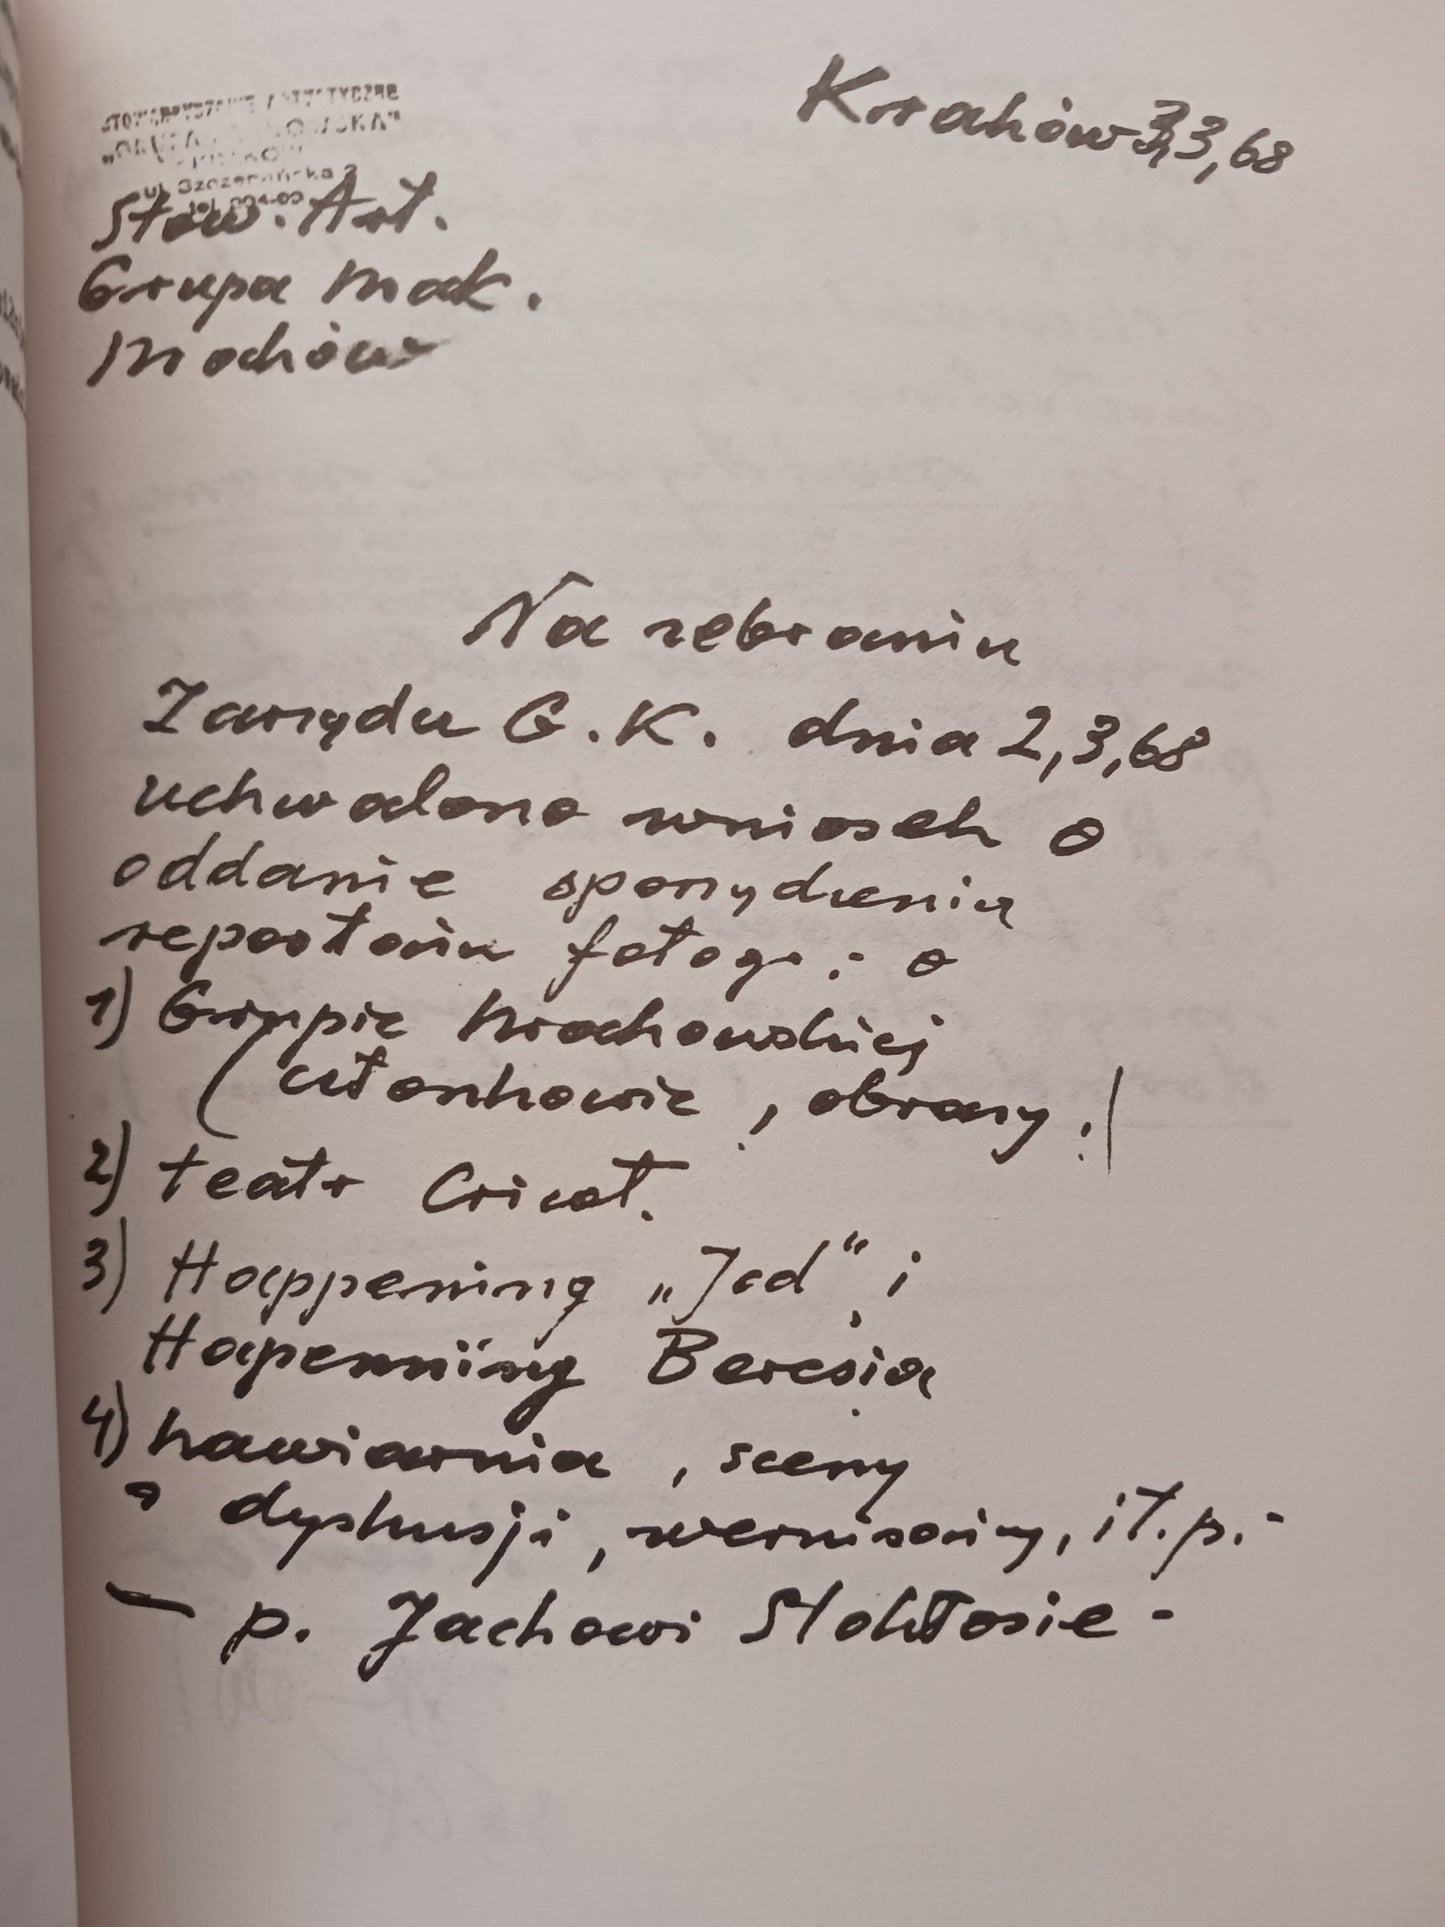 Kraków 3,3,68
STOWARZYSZENIE ARTYSTYCZNE
„GRUPA KRAKOWSKA"
KRAKÓW
ul. Szczepańska 2
Stow. Art.
Grupa Krak.
Kraków
Na zebraniu
Zarządu G.K. dnia 2,3,68
uchwalono wniosek o
oddanie sporządzenia
reportażu fotogr: o
1) Grupie Krakowskiej
(członkowie, obrazy.)
2) teatr Cricot.
3) Happening „Jad" i
Happenning Beresia
4) kawiarnia, sceny
dyskusji, wernisaży, it.p.-
— p. Jackowi Stokłosie -